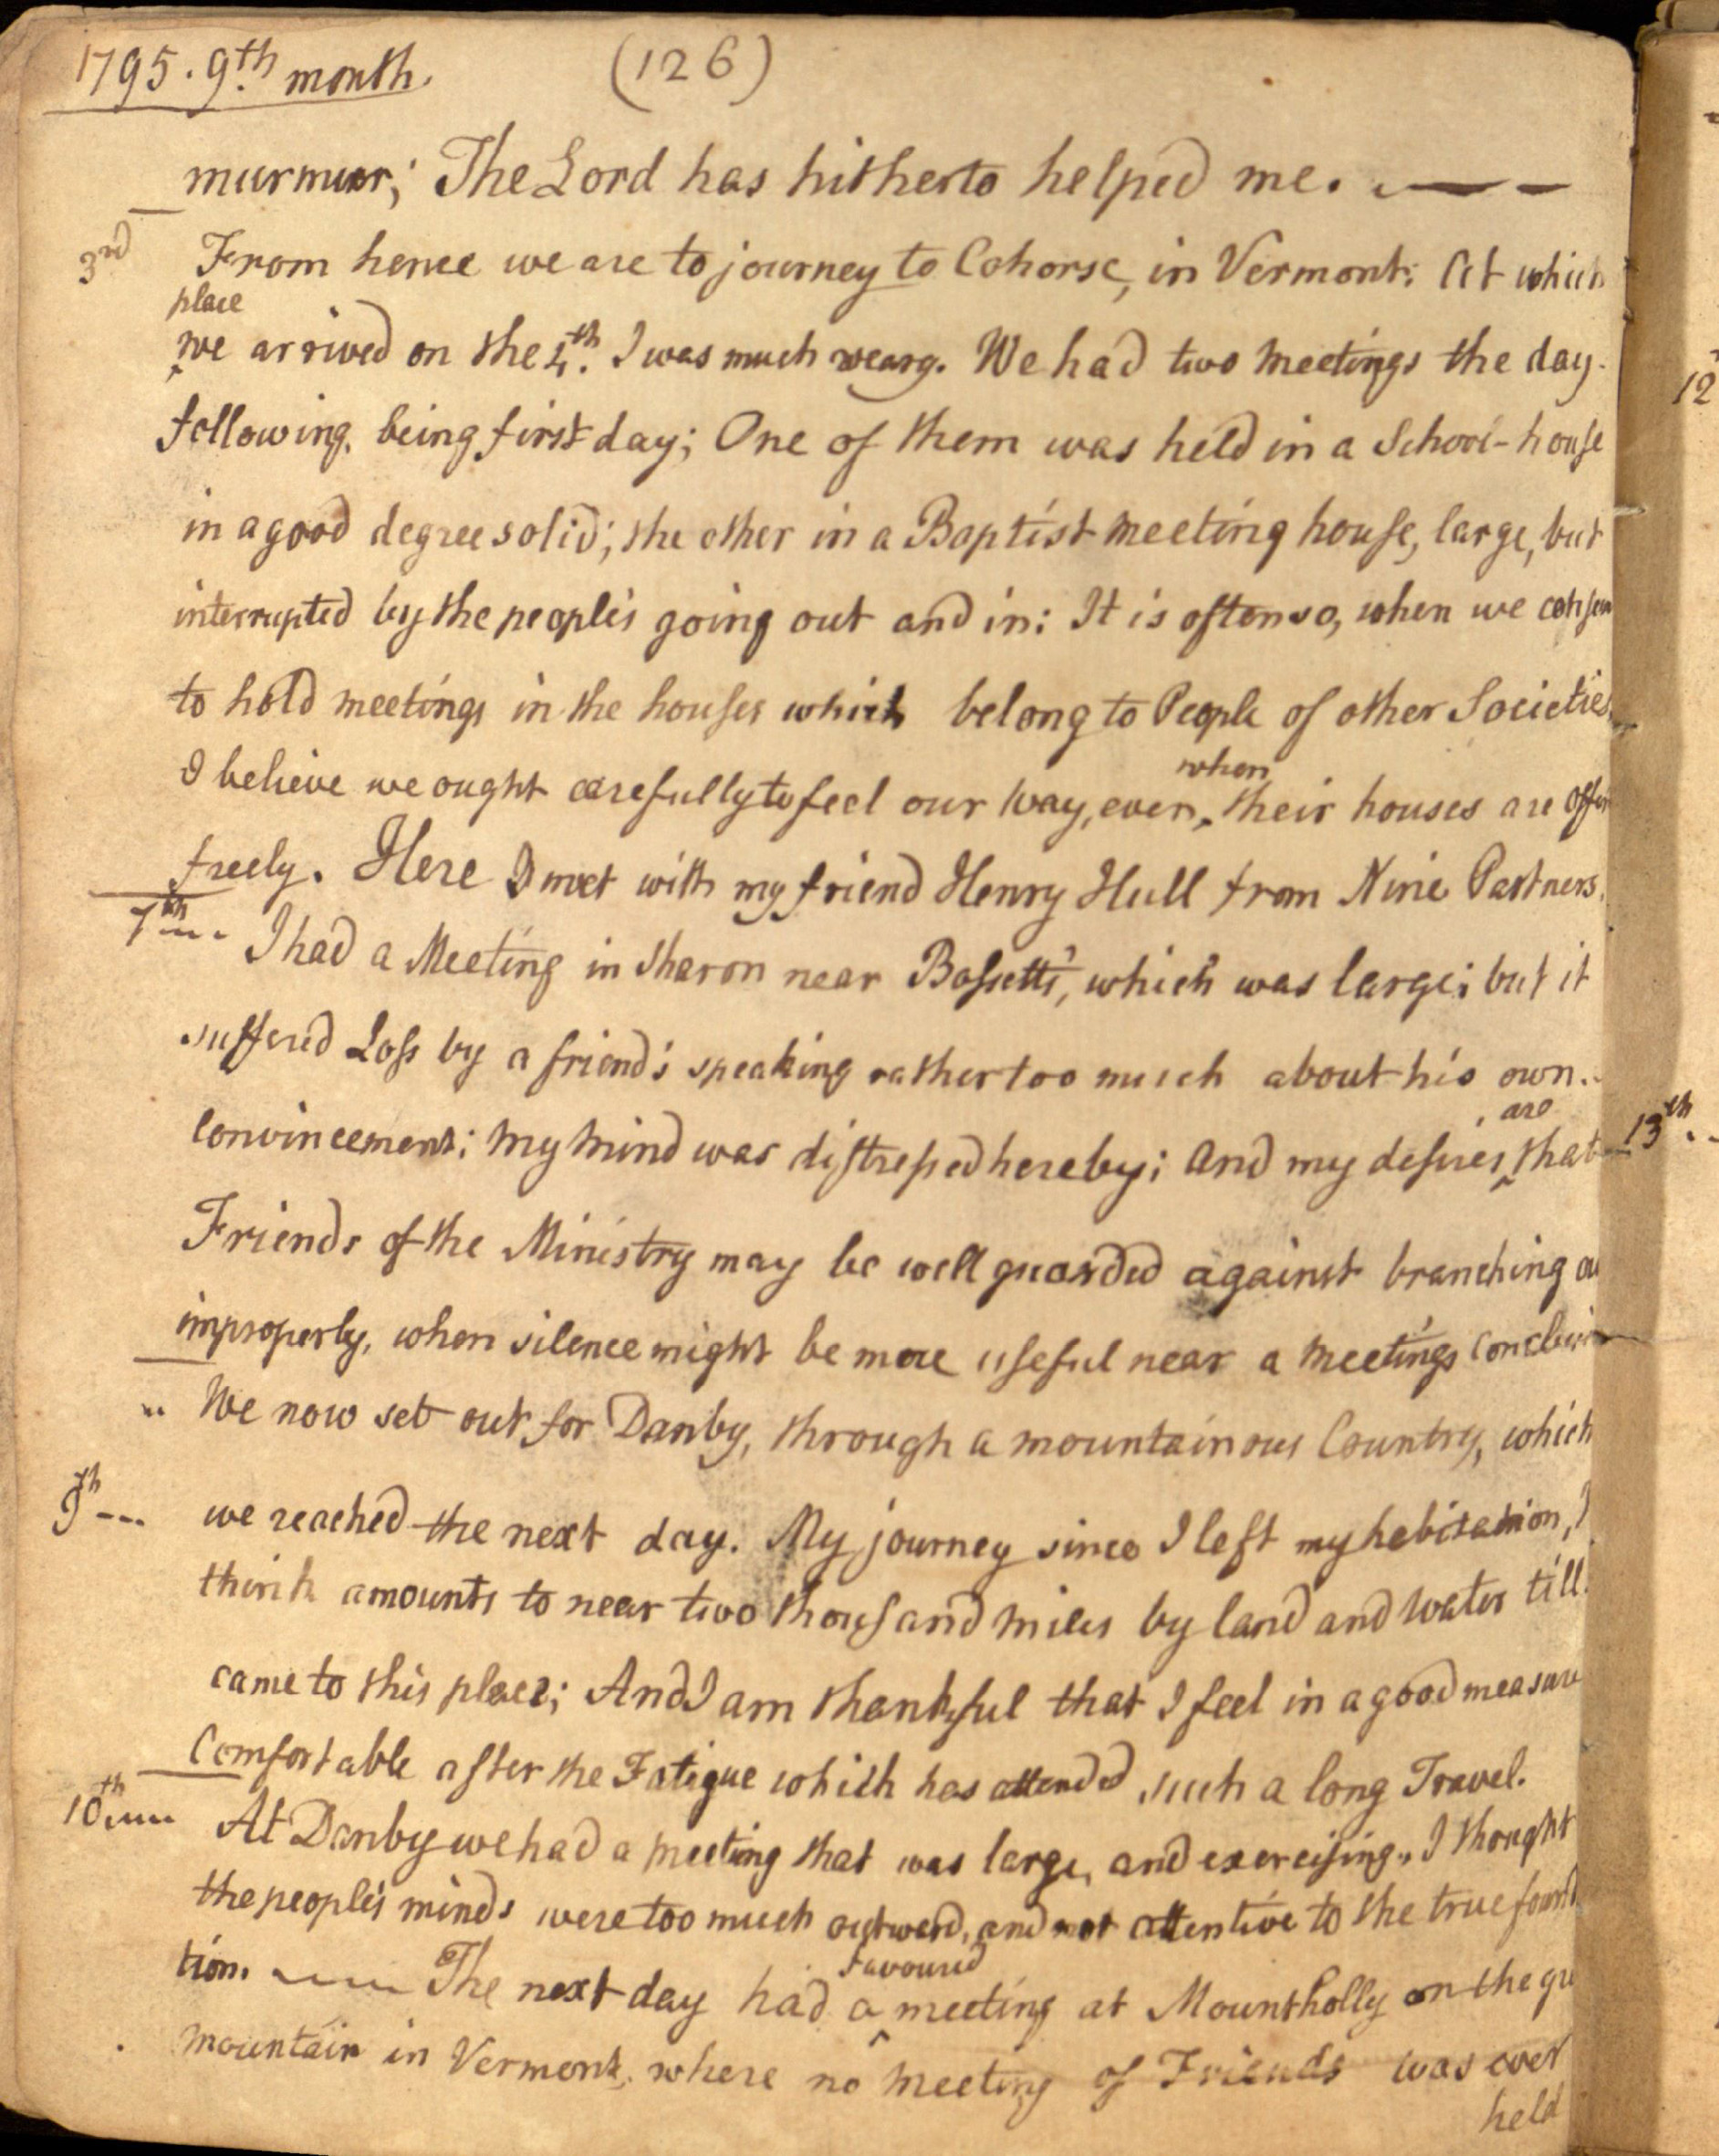 1795. 9th month. (126)
murmur; The Lord has hitherto helped me.
3rd From hence we are to journey to Cohorse, in Vermont: At which
place
we arrived on the 4th. I was much weary. We had two meetings the day
following, being first day; One of them was held in a School-house
in a good degree solid; the other in a Baptist meeting house, large, but
interrupted by the people's going out and in: It is often so, when we consen
to hold meetings in the houses which belong to People of other Societies,
when
I believe we ought carefully to feel our way, even their houses are offer
freely. Here I met with my friend Henry Hull from Nine Partners.
7th I had a Meeting in Sharon near Bassetts', which was large; but it
suffered Loss by a friend's speaking rather too much about his own
are
convincement; my mind was distressed hereby; and my desires that
Friends of the Ministry may be well guarded against branching ou
improperly, when silence might be more useful near a meetings conclusion
" We now set out for Danby, through a mountainous Country, which
9th --- we reached the next day. My journey since I left my habitation, I
think amounts to near two thousand miles by land and water till
came to this place; And I am thankful that I feel in a good measure
Comfortable after the Fatigue which has attended such a long Travel.
10th At Danby we had a meeting that was large, and exercising, I thought
the people's minds were too much outward, and not attentive to the true founda
favoured
tion. The next day had a meeting at Mountholly on the gre
mountain in Vermont, where no meeting of Friends was ever
held
12
13th